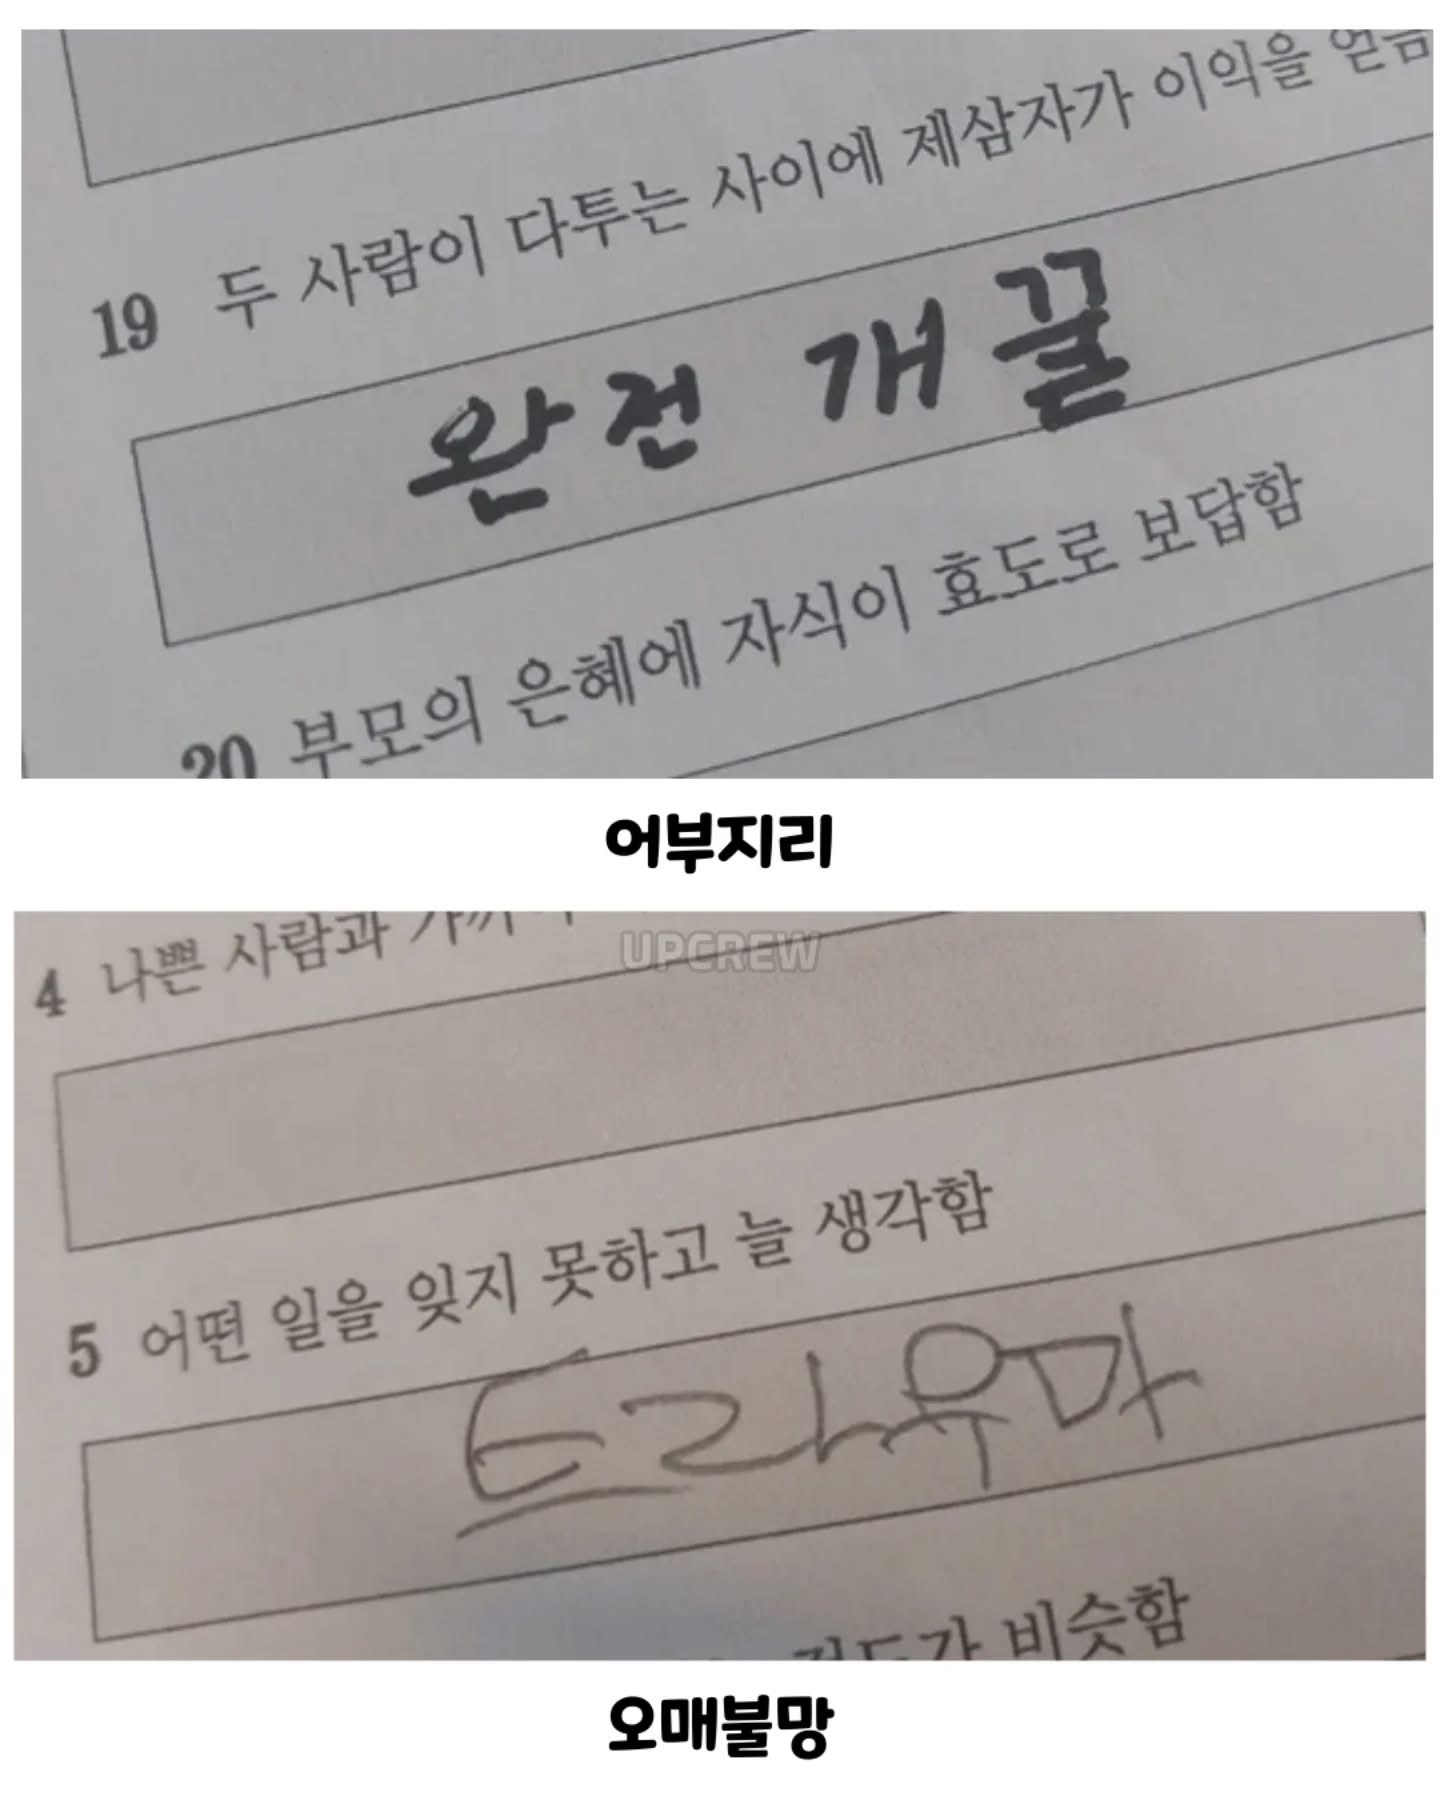 19 두 사람이 다투는 사이에 제삼자가 이익을 얻음
완전 개꿀
20 부모의 은혜에 자식이 효도로 보답함
어부지리
4 나쁜 사람과
UPCREW
5 어떤 일을 잊지 못하고 늘 생각함
트라우마
정도가 비슷함
오매불망